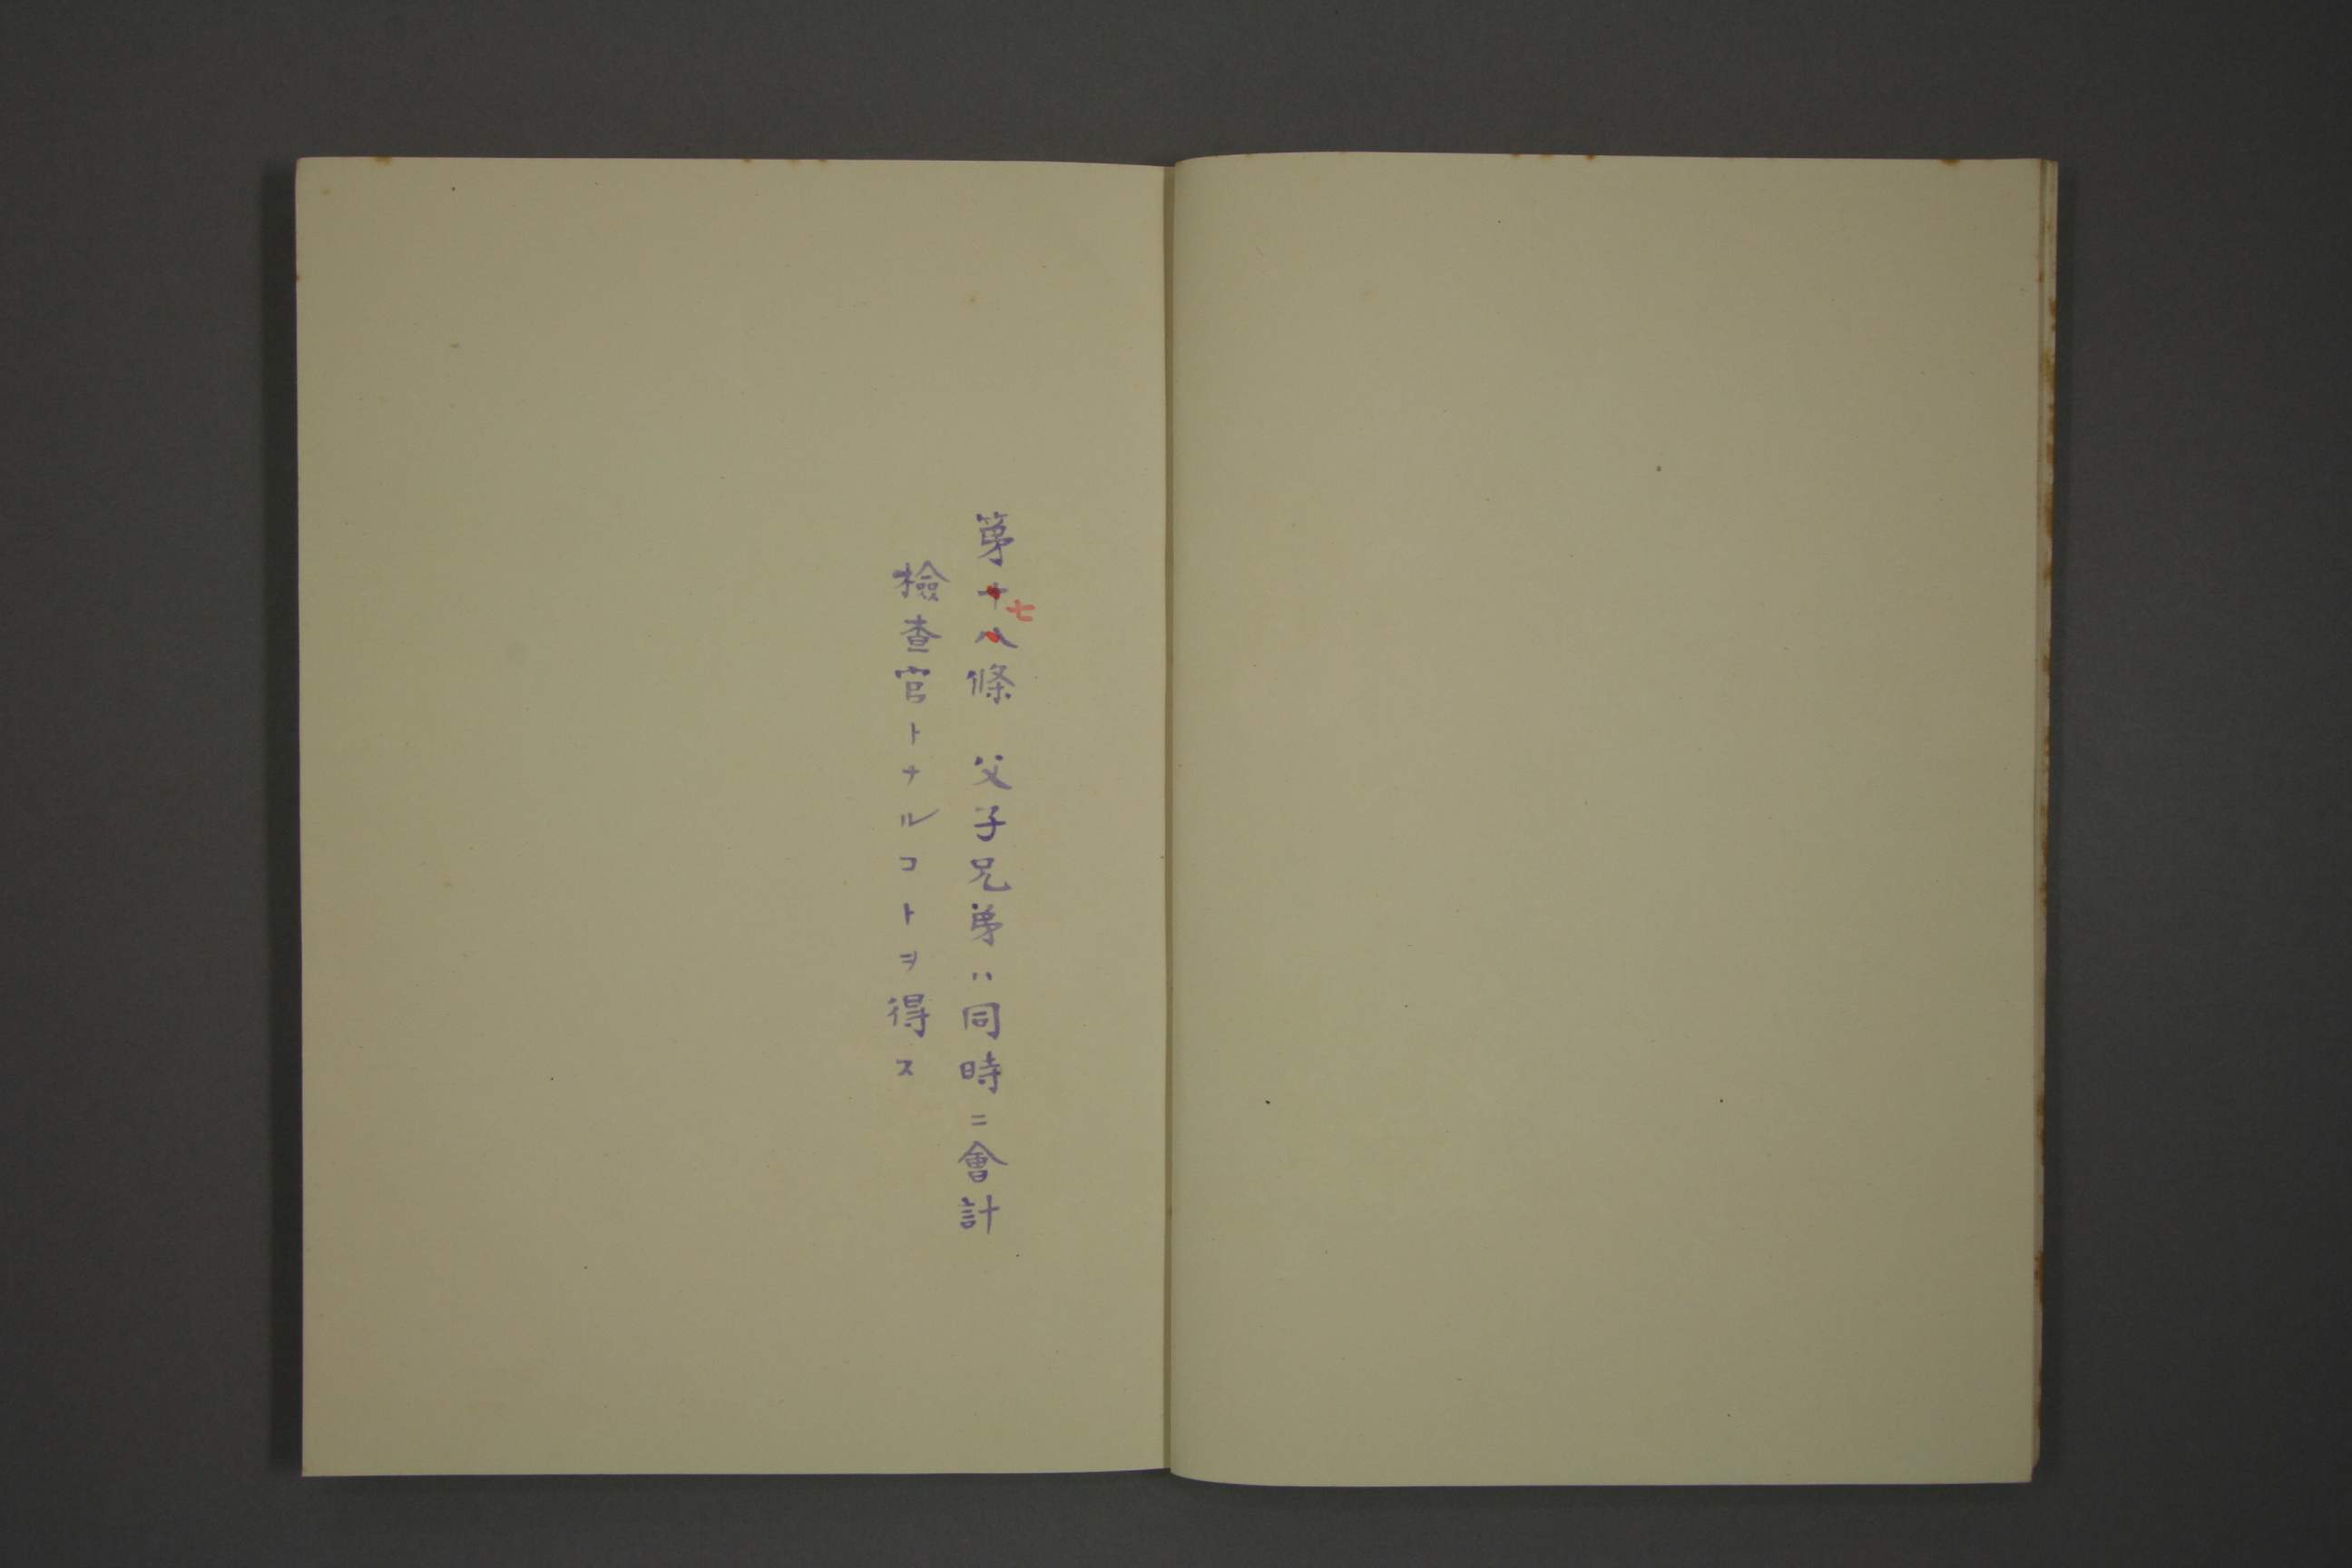 第十八條　父子兄弟ハ同時ニ會計
七
檢査官トナルコトヲ得ス